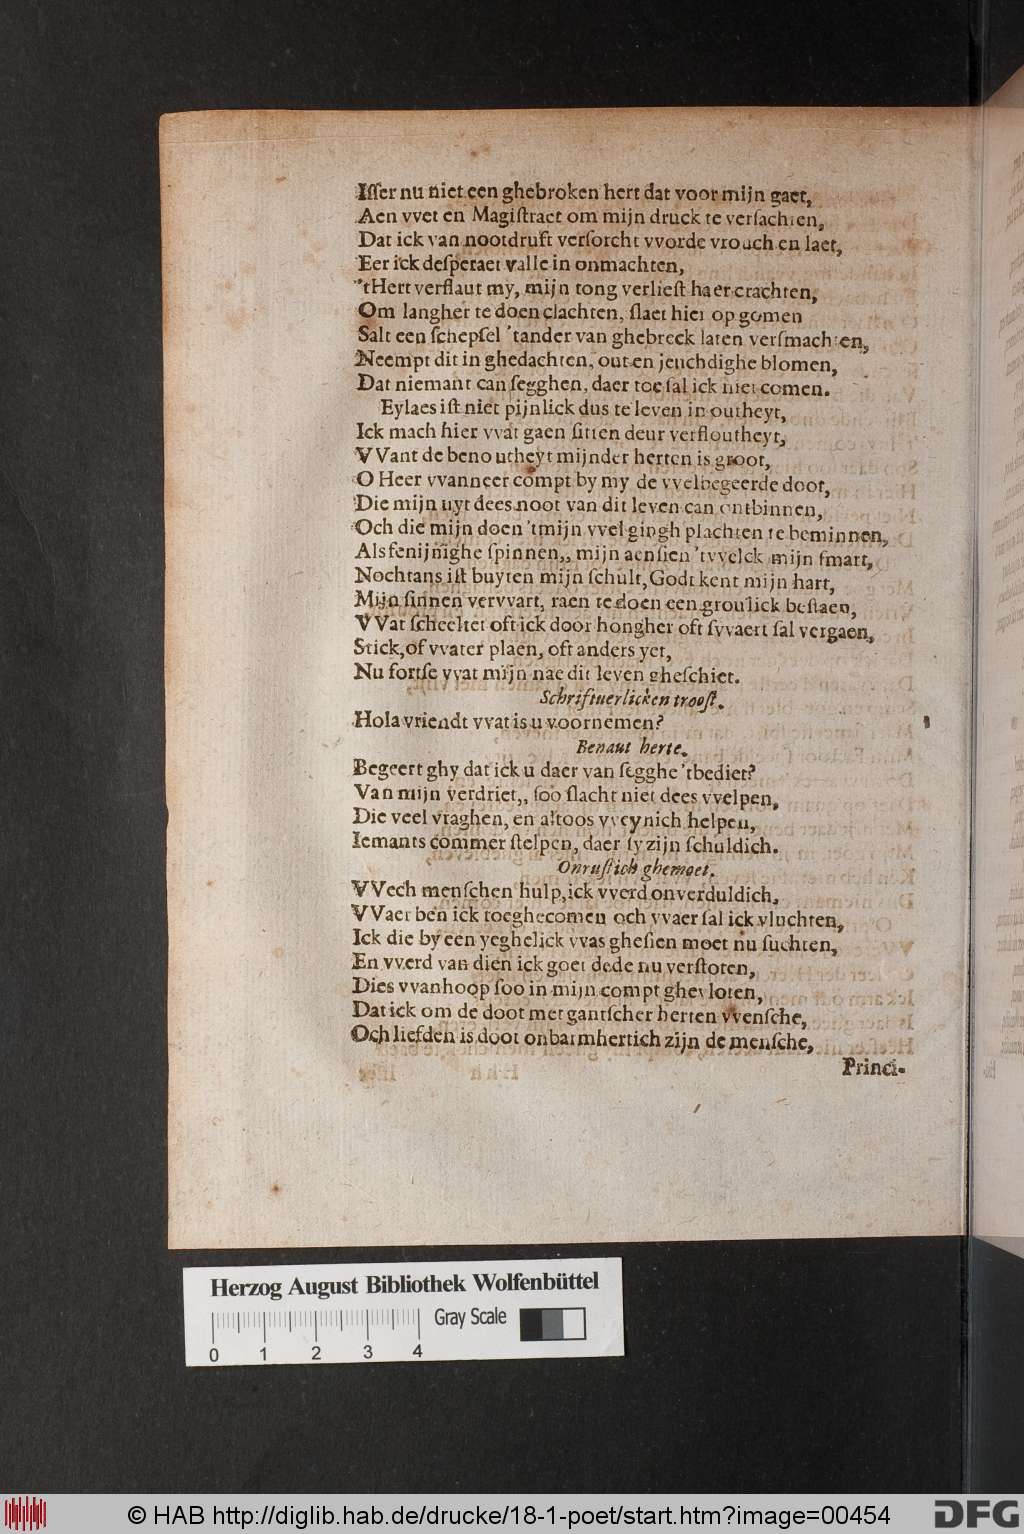 Iſſer nu niet een ghebroken hert dat voor mijn gaet,
Aen vvet en Magiſtraet om mijn druck te verſachten,
Dat ick van nootdruft verſorcht vvorde vrouch en laet,
Eer ick deſperaet valle in onmachten,
'tHert verflaut my, mijn tong verlieſt haer crachten,
Om langher te doen clachten, ſlaet hier op gomen
Salt een ſchepſel 'tander van ghebreck laten verſmachten,
Neempt dit in ghedachten, out en jeuchdighe blomen,
Dat niemant can ſegghen, daer toe ſal ick niet comen.
Eylaes iſt niet pijnlick dus te leven in outheyt,
Ick mach hier vvat gaen ſitten deur verſloutheyt,
VVant de benoutheyt mijnder herten is groot,
O Heer vvanneer compt by my de vvelbegeerde doot,
Die mijn uyt dees noot van dit leven can ontbinnen,
Och die mijn doen 'tmijn vvel gingh plachten te beminnen,
Als fenijnighe ſpinnen,, mijn aenſien 'tvvelck mijn ſmart,
Nochtans iſt buyten mijn ſchult, Godt kent mijn hart,
Mijn ſinnen vervvart, raen te doen een groulick beſtaen,
VVat ſcheeltet oft ick door hongher oft ſvvaert ſal vergaen,
Stick, of vvater plaen, oft anders yet,
Nu fortſe vvat mijn nae dit leven gheſchiet.
Schriftuerlicken trooſt.
Hola vriendt vvat is u voornemen?
Benaut herte.
Begeert ghy dat ick u daer van ſegghe 'tbediet?
Van mijn verdriet,, ſoo ſlacht niet dees vvelpen,
Die veel vraghen, en altoos vveynich helpen,
Iemants commer ſtelpen, daer ſy zijn ſchuldich.
Onruſtich ghemoet.
VVech menſchen hulp, ick vverd onverduldich,
VVaer ben ick toeghecomen och vvaer ſal ick vluchten,
Ick die by een yeghelick vvas gheſien moet nu ſuchten,
En vverd van dien ick goet dede nu verſtoten,
Dies vvanhoop ſoo in mijn compt ghevloten,
Dat ick om de doot met gantſcher herten vvenſche,
Och liefden is doot onbarmhertich zijn de menſche,
Princi-
Herzog August Bibliothek Wolfenbüttel
Gray Scale
0 1 2 3 4
© HAB http://diglib.hab.de/drucke/18-1-poet/start.htm?image=00454
DFG